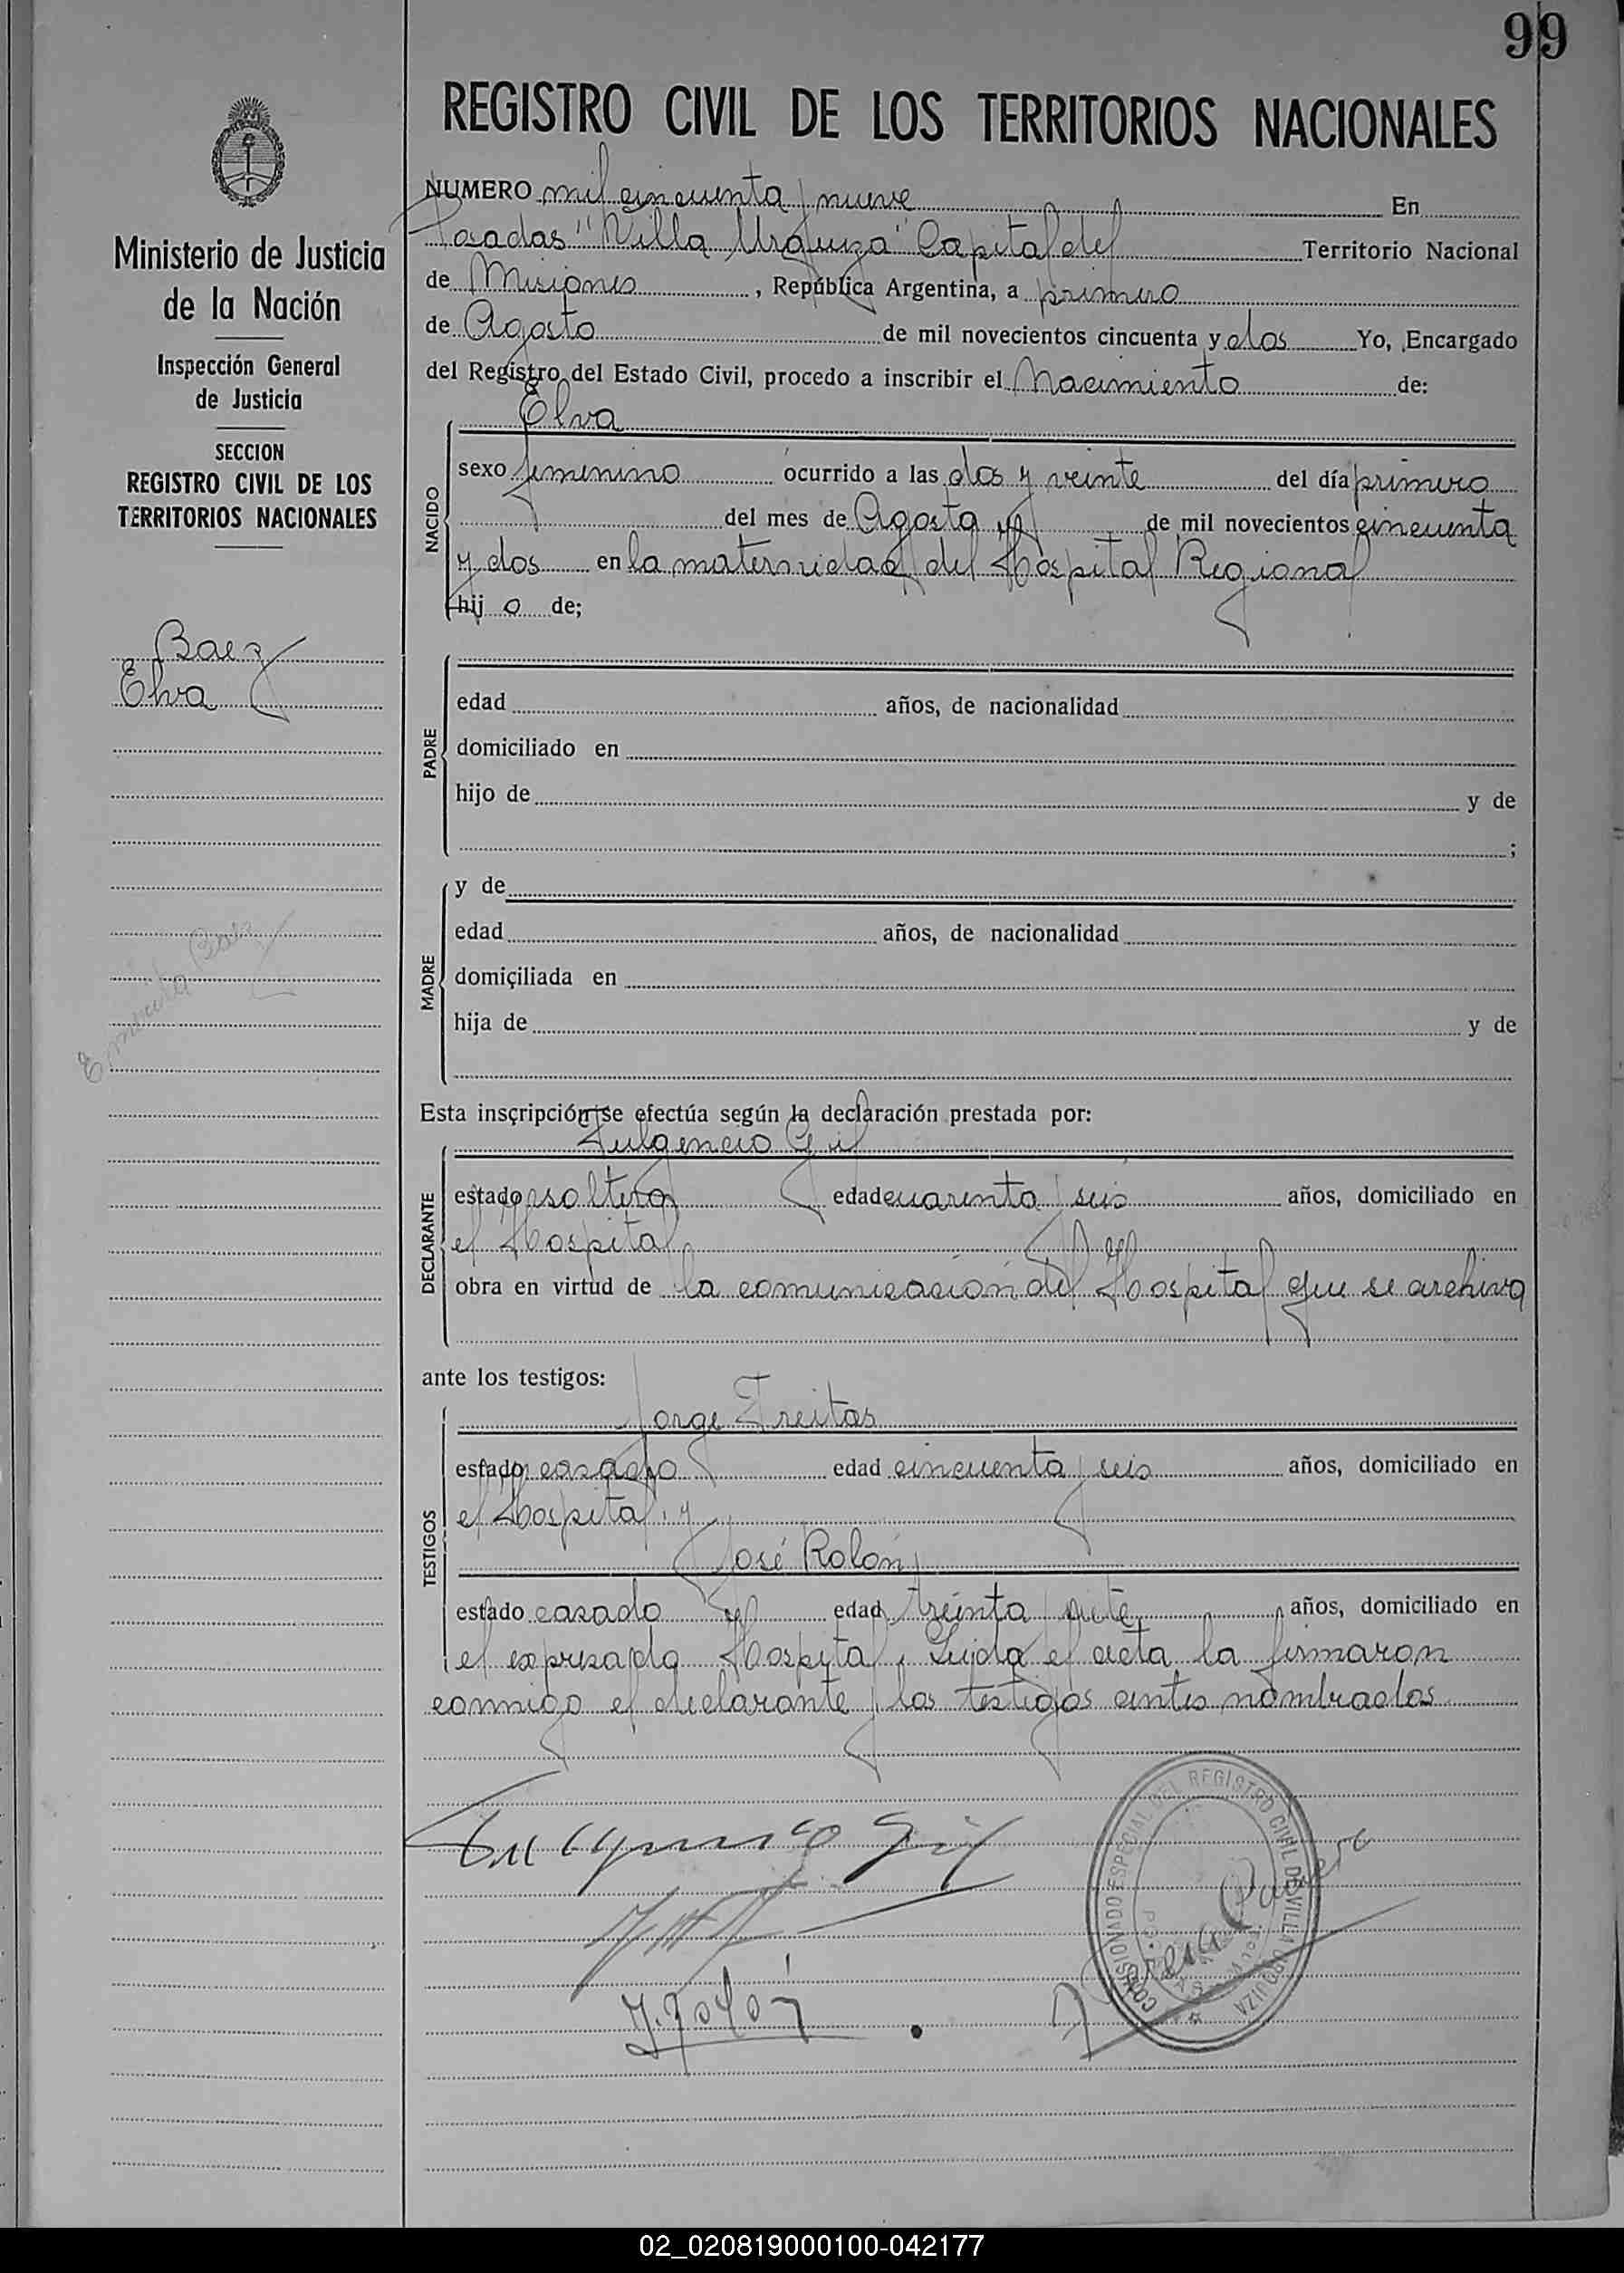 99
REGISTRO CIVIL DE LOS TERRITORIOS NACIONALES
Ministerio de Justicia
de la Nación
Inspección General
de Justicia
SECCION
REGISTRO CIVIL DE LOS
TERRITORIOS NACIONALES
Baez
Elva
Baez
NUMERO mil cincuenta y nueve En
Posadas "Villa Urquiza" Capital del Territorio Nacional
de Misiones, República Argentina, a primero
de Agosto de mil novecientos cincuenta y dos Yo, Encargado
del Registro del Estado Civil, procedo a inscribir el Nacimiento de:
NACIDO
Elva
sexo femenino ocurrido a las dos y veinte del día primero
del mes de Agosto de mil novecientos cincuenta
y dos en la maternidad del Hospital Regional
hij a de;
PADRE
edad años, de nacionalidad
domiciliado en
hijo de y de
;
MADRE
y de
edad años, de nacionalidad
domiciliada en
hija de y de
Esta inscripción se efectúa según la declaración prestada por:
DECLARANTE
Fulgencio Gil
estado soltero edad cuarenta y seis años, domiciliado en
el Hospital
obra en virtud de la comunicación del Hospital que se archiva
ante los testigos:
TESTIGOS
Jorge Freitas
estado casado edad cincuenta y seis años, domiciliado en
el Hospital, y
José Rolón
estado casado edad treinta y siete años, domiciliado en
el expresado Hospital, Leida el acta la firmaron
conmigo el declarante y los testigos antes nombrados
Fulgencio Gil
J. Rolón
COMISIONADO ESPECIAL DEL REGISTRO CIVIL DE VILLA URQUIZA
02_020819000100-042177